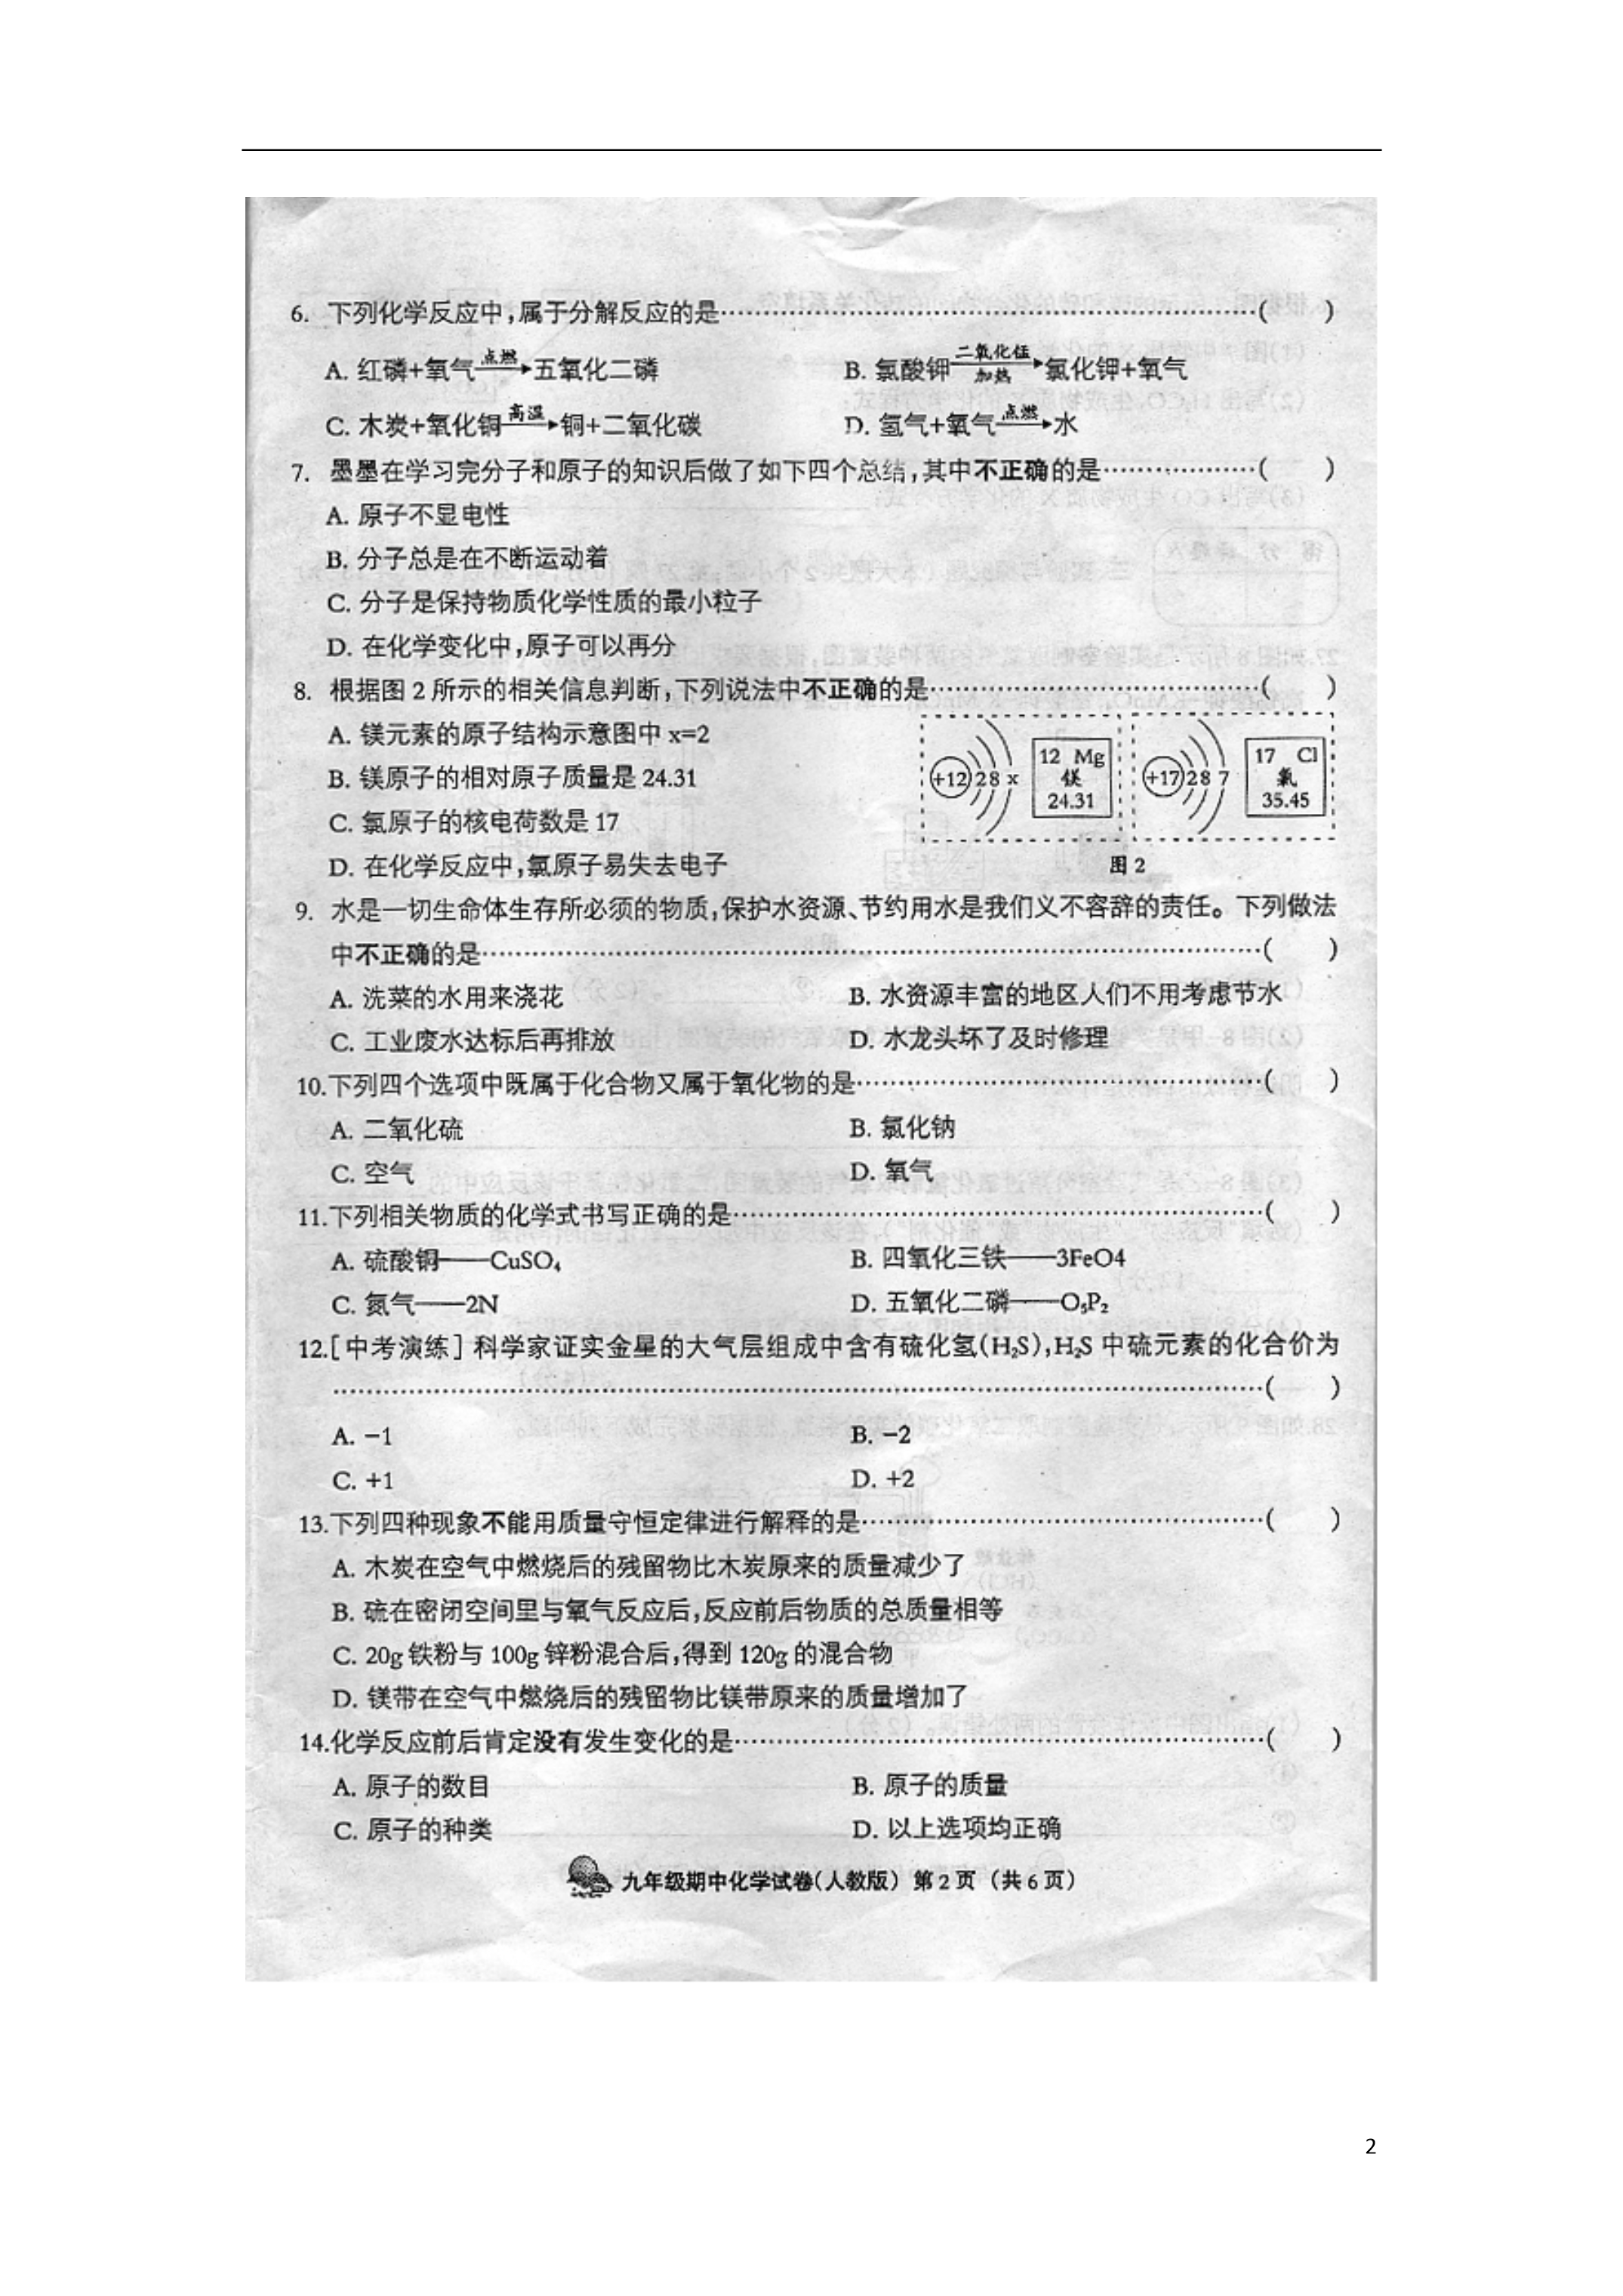 6. 下列化学反应中,属于分解反应的是……………………………………………………………( )
A. 红磷+氧气 点燃→ 五氧化二磷 B. 氯酸钾 二氧化锰 加热→ 氯化钾+氧气
C. 木炭+氧化铜 高温→ 铜+二氧化碳 D. 氢气+氧气 点燃→ 水
7. 墨墨在学习完分子和原子的知识后做了如下四个总结,其中不正确的是………………( )
A. 原子不显电性
B. 分子总是在不断运动着
C. 分子是保持物质化学性质的最小粒子
D. 在化学变化中,原子可以再分
8. 根据图 2 所示的相关信息判断,下列说法中不正确的是…………………………………( )
A. 镁元素的原子结构示意图中 x=2
B. 镁原子的相对原子质量是 24.31
C. 氯原子的核电荷数是 17
D. 在化学反应中,氯原子易失去电子
+12 2 8 x
12 Mg
镁
24.31
+17 2 8 7
17 Cl
氯
35.45
图 2
9. 水是一切生命体生存所必须的物质,保护水资源、节约用水是我们义不容辞的责任。下列做法
中不正确的是……………………………………………………………………………………( )
A. 洗菜的水用来浇花 B. 水资源丰富的地区人们不用考虑节水
C. 工业废水达标后再排放 D. 水龙头坏了及时修理
10.下列四个选项中既属于化合物又属于氧化物的是…………………………………………( )
A. 二氧化硫 B. 氯化钠
C. 空气 D. 氧气
11.下列相关物质的化学式书写正确的是………………………………………………………( )
A. 硫酸铜——CuSO₄ B. 四氧化三铁——3FeO4
C. 氮气——2N D. 五氧化二磷——O₅P₂
12.[中考演练]科学家证实金星的大气层组成中含有硫化氢(H₂S),H₂S 中硫元素的化合价为
……………………………………………………………………………………………………( )
A. −1 B. −2
C. +1 D. +2
13.下列四种现象不能用质量守恒定律进行解释的是…………………………………………( )
A. 木炭在空气中燃烧后的残留物比木炭原来的质量减少了
B. 硫在密闭空间里与氧气反应后,反应前后物质的总质量相等
C. 20g 铁粉与 100g 锌粉混合后,得到 120g 的混合物
D. 镁带在空气中燃烧后的残留物比镁带原来的质量增加了
14.化学反应前后肯定没有发生变化的是………………………………………………………( )
A. 原子的数目 B. 原子的质量
C. 原子的种类 D. 以上选项均正确
九年级期中化学试卷(人教版) 第 2 页 (共 6 页)
2